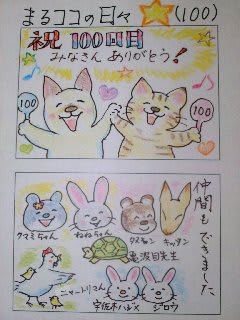 まるココの日々 (100)
祝 100回目
みなさん ありがとう！
100
100
仲間もできました
クマミちゃん
ねねちゃん
タヌキン
キッタン
亀波目先生
ニャートリさん
宇佐木ハジメ
ジロウ